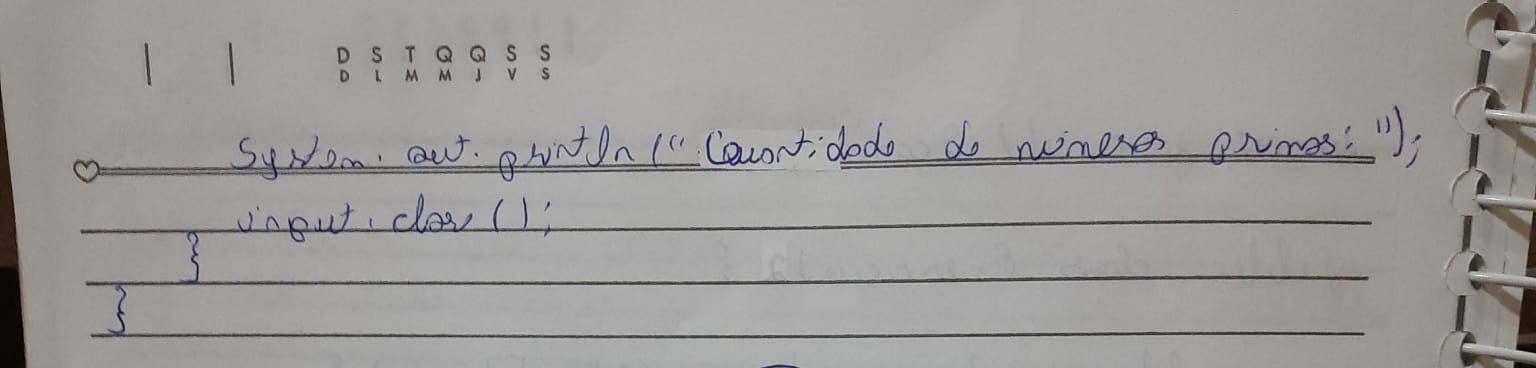 D S T Q Q S S
D L M M J V S
System.out.println("Quantidade de números primos: ");
input.close();
}
}